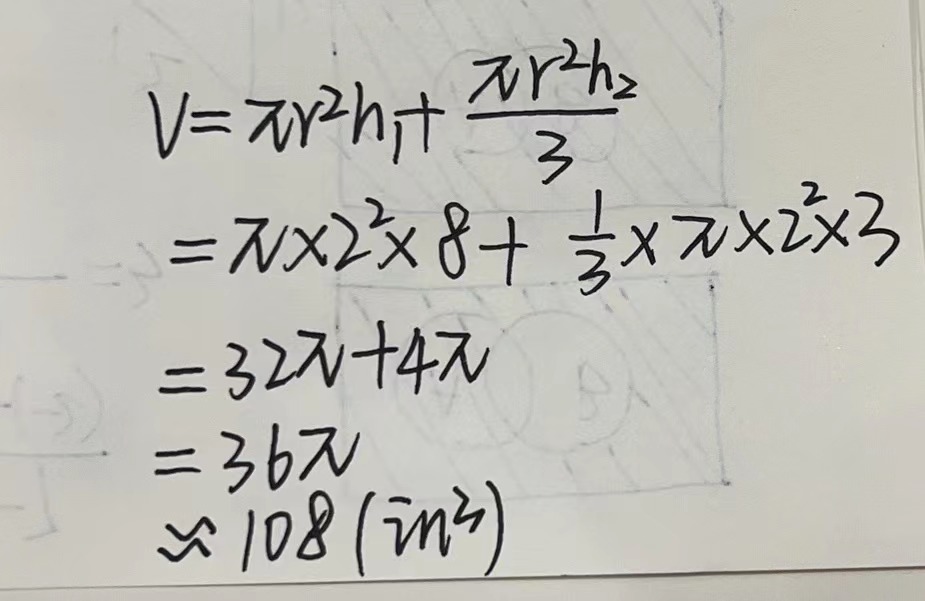 V=πr²h₁+πr²h₂/3
=π×2²×8+1/3×π×2²×3
=32π+4π
=36π
≈108(in³)